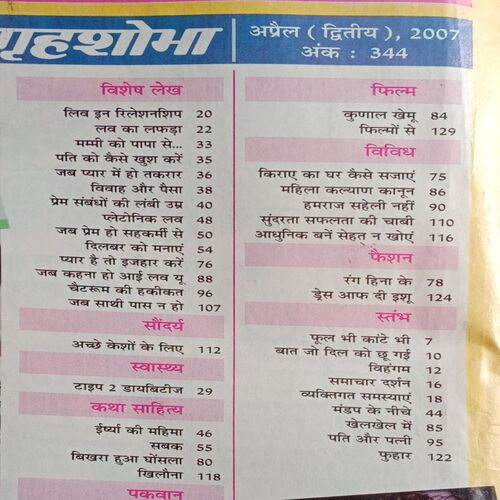 गृहशोभा
अप्रैल ( द्वितीय ), 2007
अंक : 344
विशेष लेख
लिव इन रिलेशनशिप 20
लव का लफड़ा 22
मम्मी को पापा से... 33
पति को कैसे खुश करें 35
जब प्यार में हो तकरार 36
विवाह और पैसा 38
प्रेम संबंधों की लंबी उम्र 40
प्लेटोनिक लव 48
जब प्रेम हो सहकर्मी से 50
दिलबर को मनाएं 54
प्यार है तो इजहार करें 76
जब कहना हो आई लव यू 88
चैटरूम की हकीकत 96
जब साथी पास न हो 107
सौंदर्य
अच्छे केशों के लिए 112
स्वास्थ्य
टाइप 2 डायबिटीज 29
कथा साहित्य
ईर्ष्या की महिमा 46
सबक 55
बिखरा हुआ घोंसला 80
खिलौना 118
पकवान
फिल्म
कुणाल खेमू 84
फिल्मों से 129
विविध
किराए का घर कैसे सजाएं 75
महिला कल्याण कानून 86
हमराज सहेली नहीं 90
सुंदरता सफलता की चाबी 110
आधुनिक बनें सेहत न खोएं 116
फैशन
रंग हिना के 78
ड्रेस आफ दी इशू 124
स्तंभ
फूल भी कांटे भी 7
बात जो दिल को छू गई 10
विहंगम 12
समाचार दर्शन 16
व्यक्तिगत समस्याएं 18
मंडप के नीचे 44
खेलखेल में 85
पति और पत्नी 95
फुहार 122